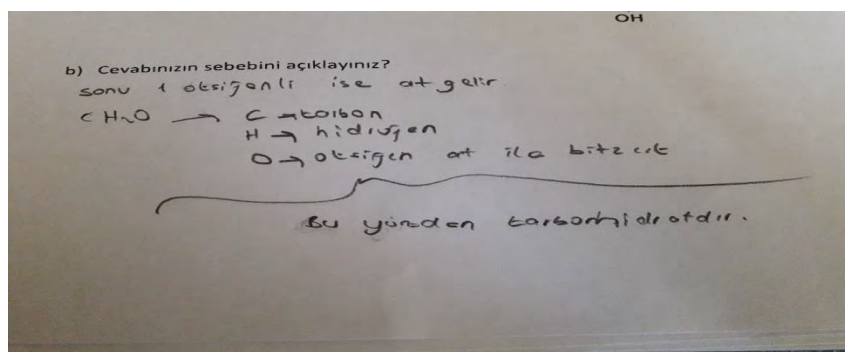 OH
b) Cevabınızın sebebini açıklayınız?
sonu 1 oksijenli ise at gelir
CH₂O → C → karbon
H → hidrojen
O → oksijen at ile bitecek
Bu yüzden karbonhidratdır.